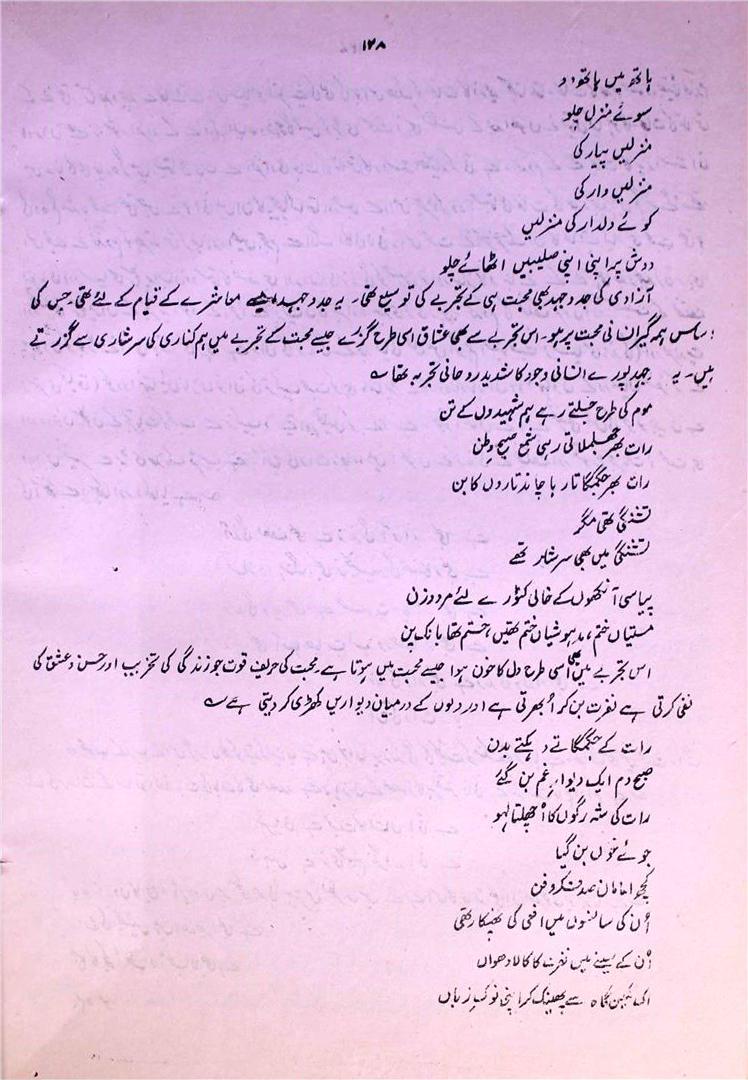 ۱۲۸
ہاتھ میں ہاتھ دو
سوئے منزل چلو
منزلیں پیار کی
منزلیں دار کی
کوئے دلدار کی منزلیں
دوش پر اپنی اپنی صلیبیں اٹھائے چلو
آزادی کی جدوجہد بھی محبت ہی کے تجربے کی توسیع تھی۔ یہ جدوجہد ایسے معاشرے کے قیام کے لئے تھی۔ جس کی
اساس ہمہ گیر انسانی محبت پر ہو۔ اس تجربے سے بھی عشاق اسی طرح گزرے جیسے محبت کے تجربے میں ہم کناری کی سرشاری سے گزرتے
ہیں۔ یہ جہد پورے انسانی وجود کا شدید روحانی تجربہ تھا ؎
موم کی طرح جلتے رہے ہم شہیدوں کے تن
رات بھر جھلملاتی رہی شمع صبح وطن
رات بھر جگمگاتا رہا چاند تاروں کا بن
تشنگی تھی مگر
تشنگی میں بھی سرشار تھے
پیاسی آنکھوں کے خالی کٹورے لئے مرد و زن
مستیاں ختم، مدہوشیاں ختم تھیں، ختم تھا بانکپن
اس تجربے میں بھی اسی طرح دل کا خون ہوا جیسے محبت میں ہوتا ہے۔ محبت کی حریف قوت جو زندگی کی تخریب اور حسن و عشق کی
نفی کرتی ہے نفرت بن کر اُبھرتی ہے اور دلوں کے درمیان دیواریں کھڑی کر دیتی ہے ؎
رات کے جگمگاتے دہکتے بدن
صبح دم ایک دیوارِ غم بن گئے
رات کی شہ رگوں کا اُچھلتا لہو
جوئے خوں بن گیا
کچھ امامان صد مکر و فن
اُن کی سانسوں میں افعی کی پھنکار تھی
اُن کے سینے میں نفرت کا کالا دھواں
اک کمیں گاہ سے پھینک کر اپنی نوکِ زباں